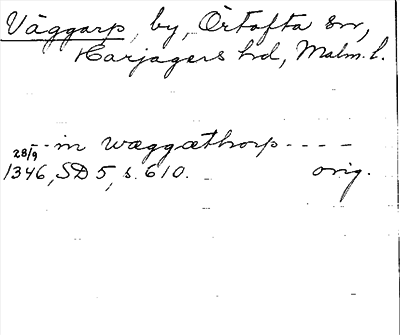 Väggarp, by, Örtofta sn,
Harjagers hd, Malm. l.
- - in wæggæthorp - - - -
28/9
1346, SD 5, s. 610. orig.